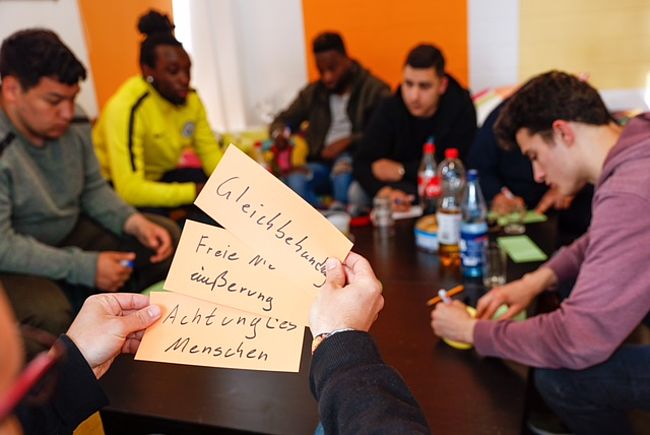 Gleichbehandlung
Freie
äußerung
Achtung des
Menschen